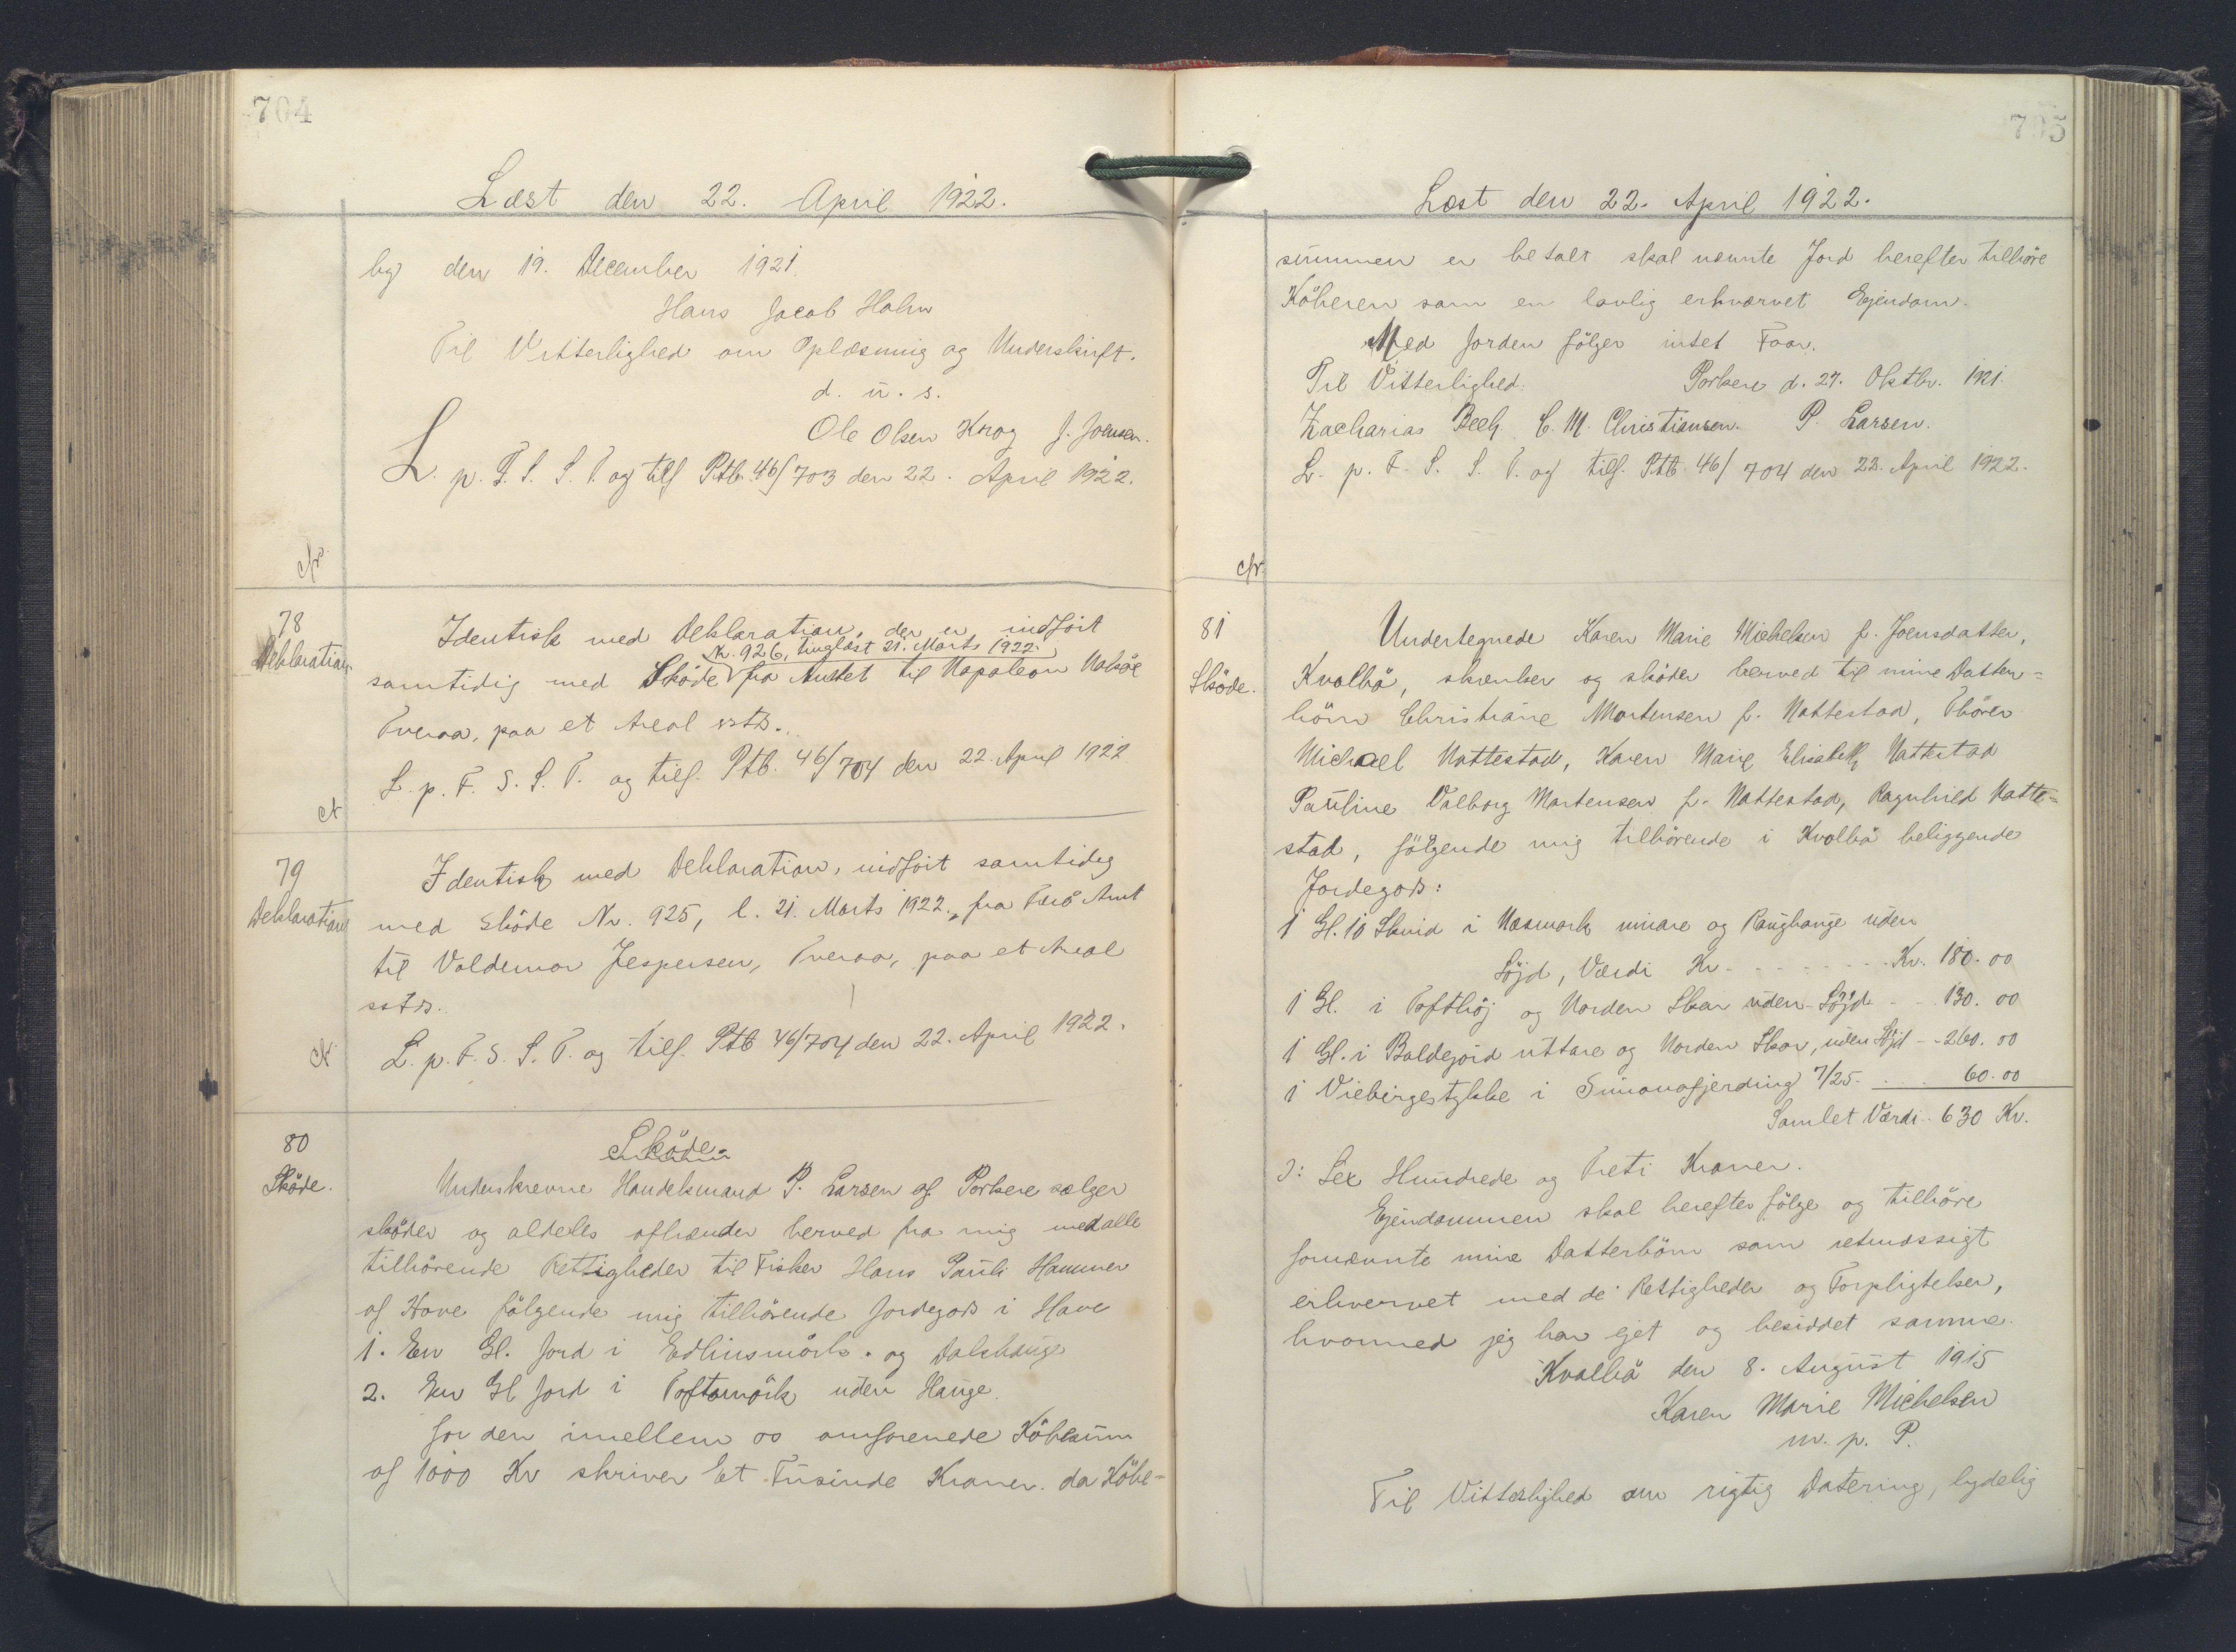 704
Læst den 22. April 1922.
by den 19. December 1921.
Hans Jacob Hahn
Til Vitterlighed om Oplæsning og Underskrift.
d. u. s.
Ole Olsen Krog J. Joensen.
L. p. F. S. S. T. og tilf Ptb. 46/703 den 22. April 1922.
cfr.
78
Deklaration
Identisk med Deklaration, der er indført
Nr. 926, tinglæst 21. Marts 1922.
samtidig med Skøde fra Amtet til Napoleon Nolsøe
Tveraa, paa et Areal sstds.
L. p. F. S. S. T. og tilf. Ptb. 46/704 den 22. April 1922
cfr
79
Deklaration
Identisk med Deklaration, indført samtidig
med Skøde Nr. 925, l. 21. Marts 1922., fra Færø Amt
til Valdemar Jespersen, Tveraa, paa et Areal
sstds..
L. p. F. S. S. T. og tilf. Ptb 46/704 den 22. April 1922.
cfr.
80
Skøde.
Skøde.
Underskrevne Handelsmand P. Larsen af Porkere sælger
skøder og aldeles afhænder herved fra mig med alle
tilhörende Rettigheder til Fisker Hans Pauli Hammer
af Hove fölgende mig tilhörende Jordegods i Hove
1. En Gl. Jord i Edlinsmörk. og Dalshauge
2. En Gl Jord i Toftamörk uden Hauge.
for den imellem os omforenede Köbesum
af 1000 Kr skriver Et Tusinde Kroner. da Köbe-
705
Læst den 22. April 1922.
summen er betalt skal nævnte Jord herefter tilhöre
Köberen som en lovlig erhvervet Ejendom.
Med Jorden fölger intet Faar.
Til Vitterlighed: Porkere d. 27. Oktbr. 1921.
Zacharias Bech. C. M. Christiansen. P. Larsen.
L. p. F. S. S. T. og tilf. Ptb. 46/704 den 22. April 1922.
cfr.
81
Skøde.
Undertegnede Karen Marie Michelsen f. Joensdatter,
Kvalbö, skænker og sköder herved til mine Datter=
börn Christiane Mortensen f. Nattestad, Thörer
Michael Nattestad, Karen Marie Elisabeth Nattestad
Pauline Valborg Mortensen f. Nattestad, Ragnhild Natte=
stad, fölgende mig tilhörende i Kvalbö beliggende
Jordegods:
1 Gl. 10 Skind i Næsmørk innare og Raughauge uden
Söjd, Værdi Kr. - - - - - - - Kr. 180.00
1 Gl. i Tofthöj og Norden Skar uden Söjd - - 130.00
1 Gl. i Baldegörd uttare og Norden Skor, uden Söjd - - 260.00
1 Viebirgestykke i Simonafjerding 7/25. . . . . 60.00
Samlet Værdi.. 630 Kr.
ɔ: Sex Hundrede og Treti Kroner.
Ejendommen skal herefter fölge og tilhöre
fornævnte mine Datterbörn som retmæssigt
erhvervet med de Rettigheder og Forpligtelser,
hvormed jeg har ejet og besiddet samme.
Kvalbö den 8. August 1915
Karen Marie Michelsen
m. p. P.
Til Vitterlighed om rigtig Datering, lydelig